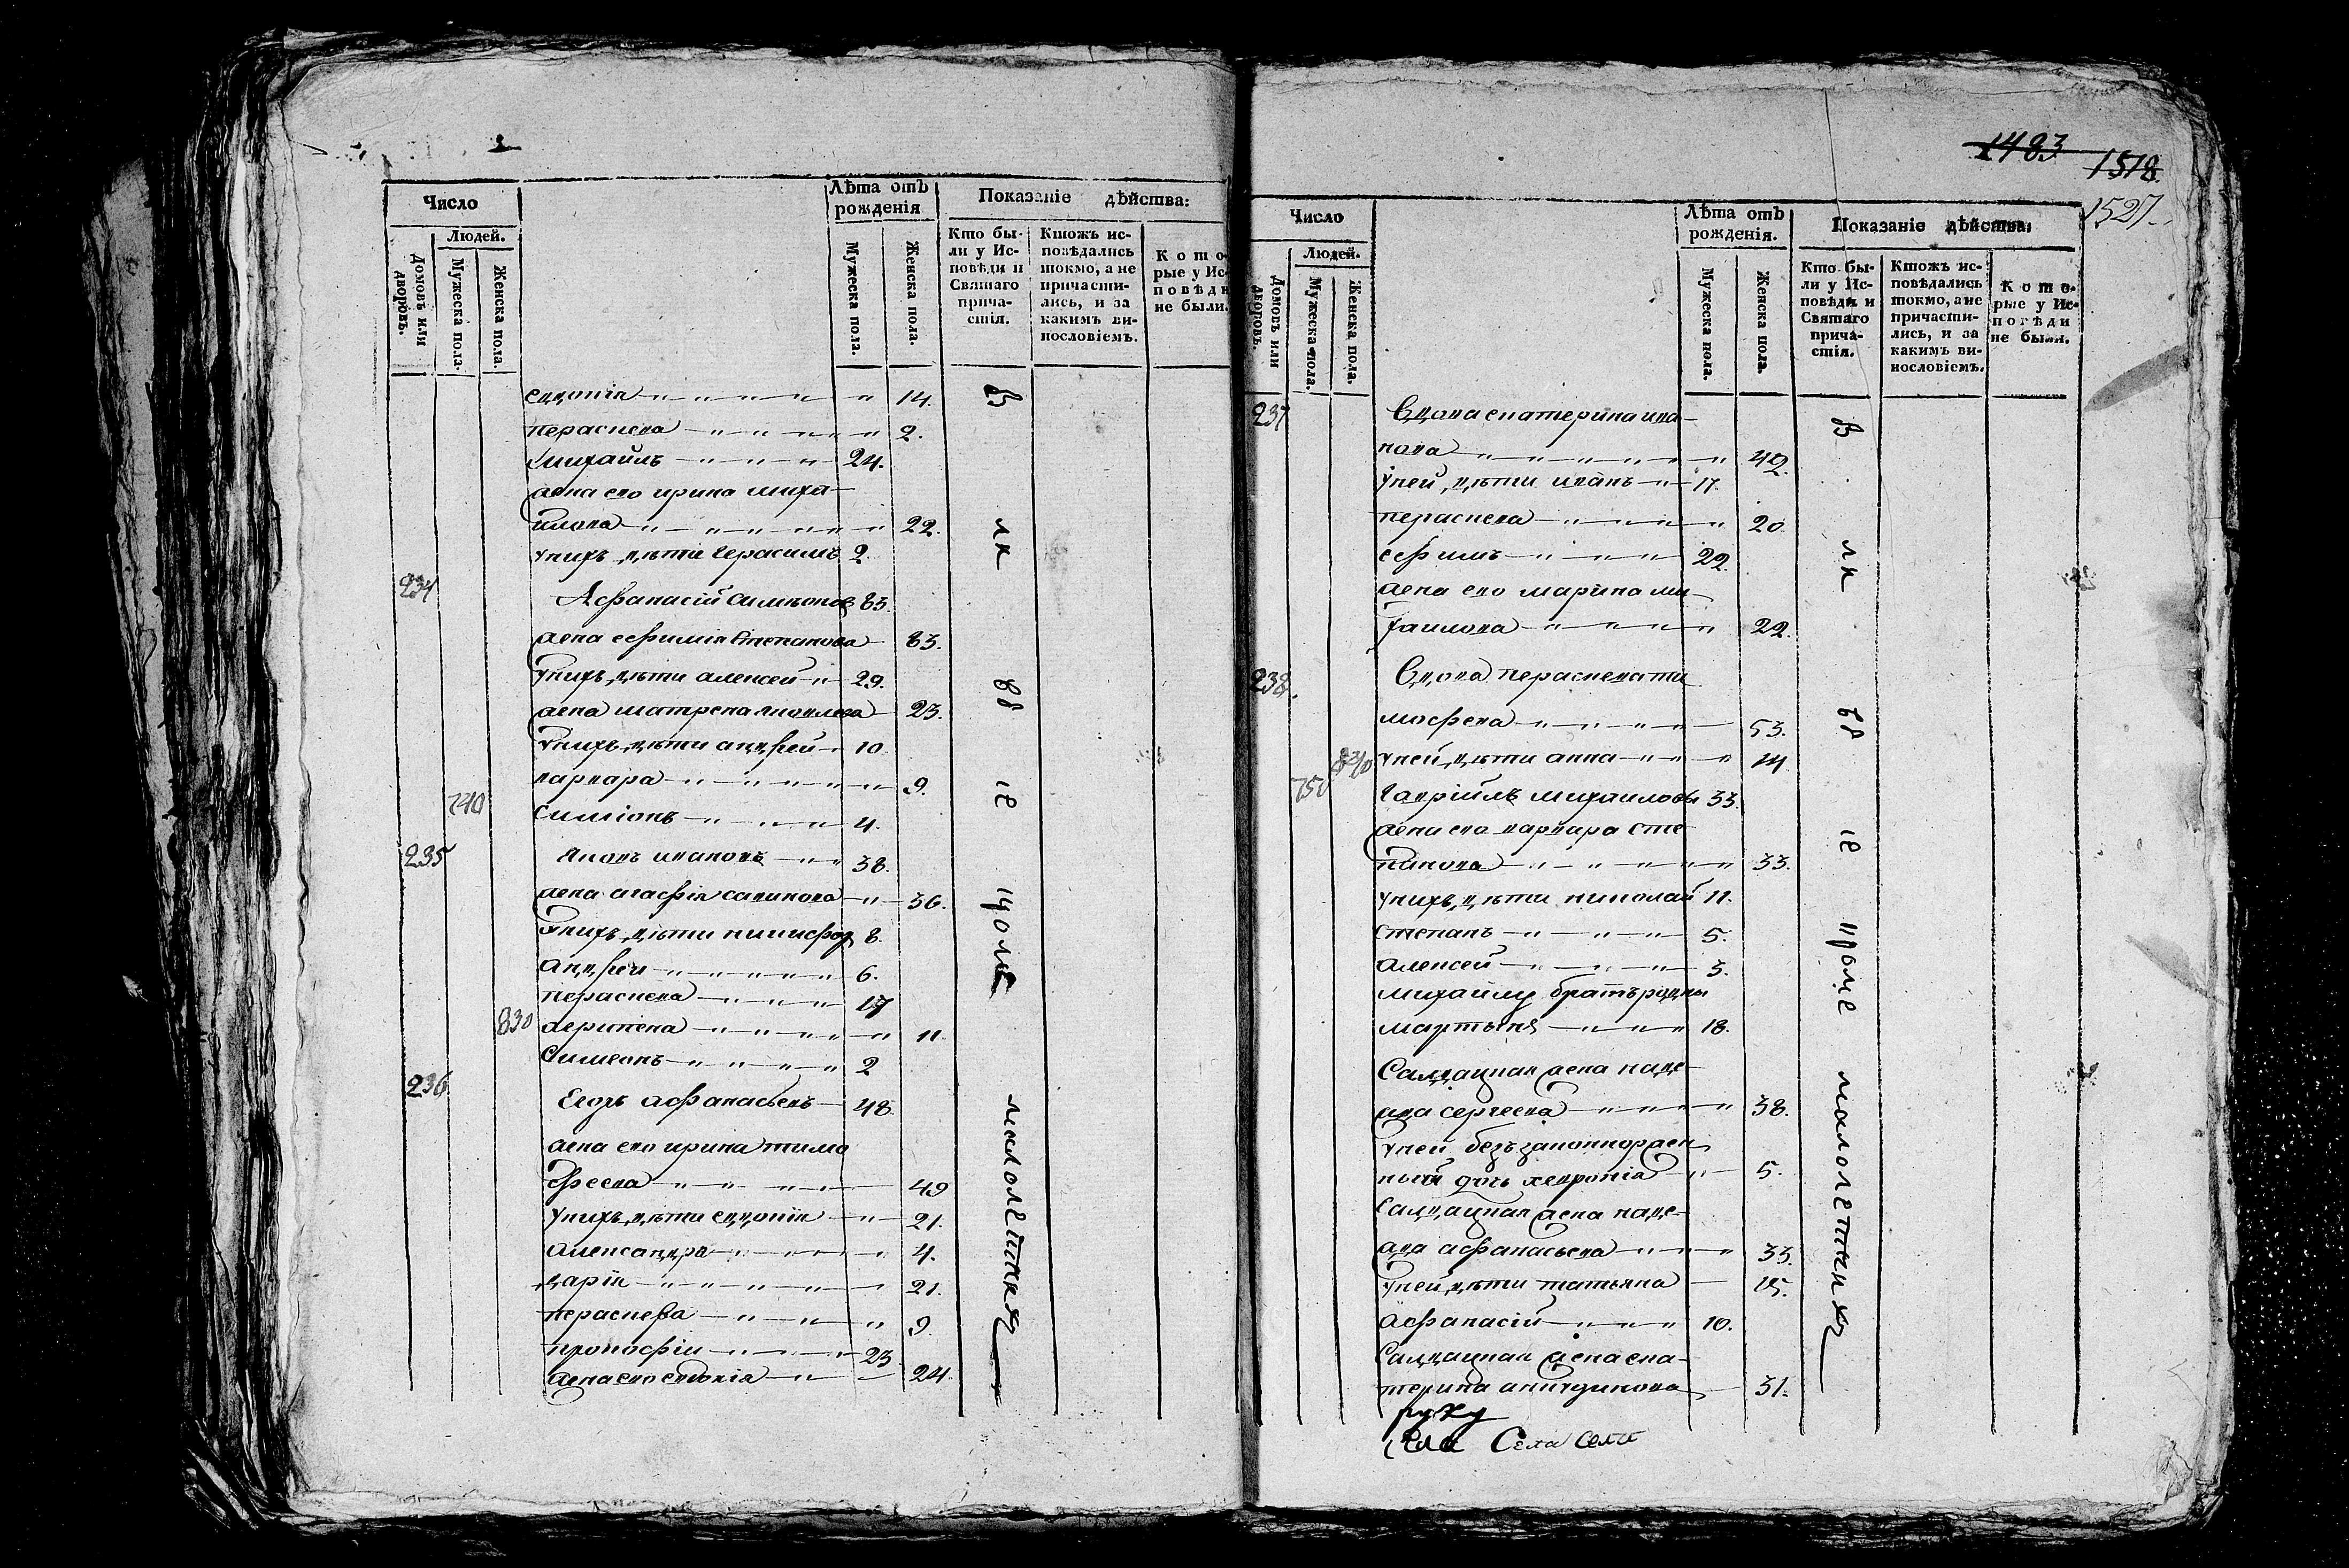 Число
Людей.
Домовъ или дворовъ.
Мужеска пола.
Женска пола.
Лѣта отъ рожденія
Мужеска пола.
Женска пола.
Показаніе дѣйства:
Кто бы-
ли у Ис-
повѣди и
Святаго
прича-
стія.
Ктожъ ис-
повѣдались
токмо, а не
причасти-
лись, и за
какимъ ви-
нословіемъ.
Кото-
рые у Ис-
повѣди
не были.
евдокія 14.
параскева 2.
михаилъ 24.
жена его ирина миха-
илова 22.
у нихъ дѣти герасимъ 2.
234 Афанасій Симеоновъ 83.
жена ефимія Степанова 83.
у нихъ дѣти алексей 29.
жена матрена яковлева 23.
у нихъ дѣти андрей 10.
варвара 9.
740 Симіонъ 4.
235 яковъ ивановъ 38.
жена агафія 36.
у нихъ дѣти никифоръ 8.
андрей 6.
параскева 17
830 11.
Симеонъ 2
236 Егоръ афанасьевъ 48.
жена его ирина тимо
феева 49
у нихъ дѣти евдокія 21.
александра 4.
дарія 21.
параскева 9.
прокофій 23
жена его евдокія 24.
вс
як
малолетнихъ
1483
1518
1527
Число
Людей.
Домовъ или дворовъ.
Мужеска пола.
Женска пола.
Лѣта отъ рожденія.
Мужеска пола.
Женска пола.
Показаніе дѣйства:
Кто бы-
ли у Ис-
повѣди и
Святаго
прича-
стія.
Ктожъ ис-
повѣдались
токмо, а не
причасти-
лись, и за
какимъ ви-
нословіемъ.
Кото-
рые у Ис-
повѣди
не были.
237 Вдова екатерина ива-
нова 42.
у ней дѣти иванъ 17.
параскева 20.
ефимъ 22.
жена его марина ми-
хаилова 22.
238. Вдова параскева ти
мофеева 53.
840 у ней дѣти анна 14
750 Гавріилъ михаиловъ 33.
жена его варвара сте
панова 33.
у нихъ дѣти николай 11.
степанъ 5.
алексей 3.
михаилу братъ родны
мартынъ 18.
Салдацкая жена наде-
жда сергеева 38.
у ней безъзаконнорожен
ный дочь 5.
Салдацкая жена наде-
жда афанасьева 33.
у ней дѣти татьяна 15.
афанасій 10.
Салдацкая жена ека-
терина 31.
кроме
малолетнихъ
руку
Села